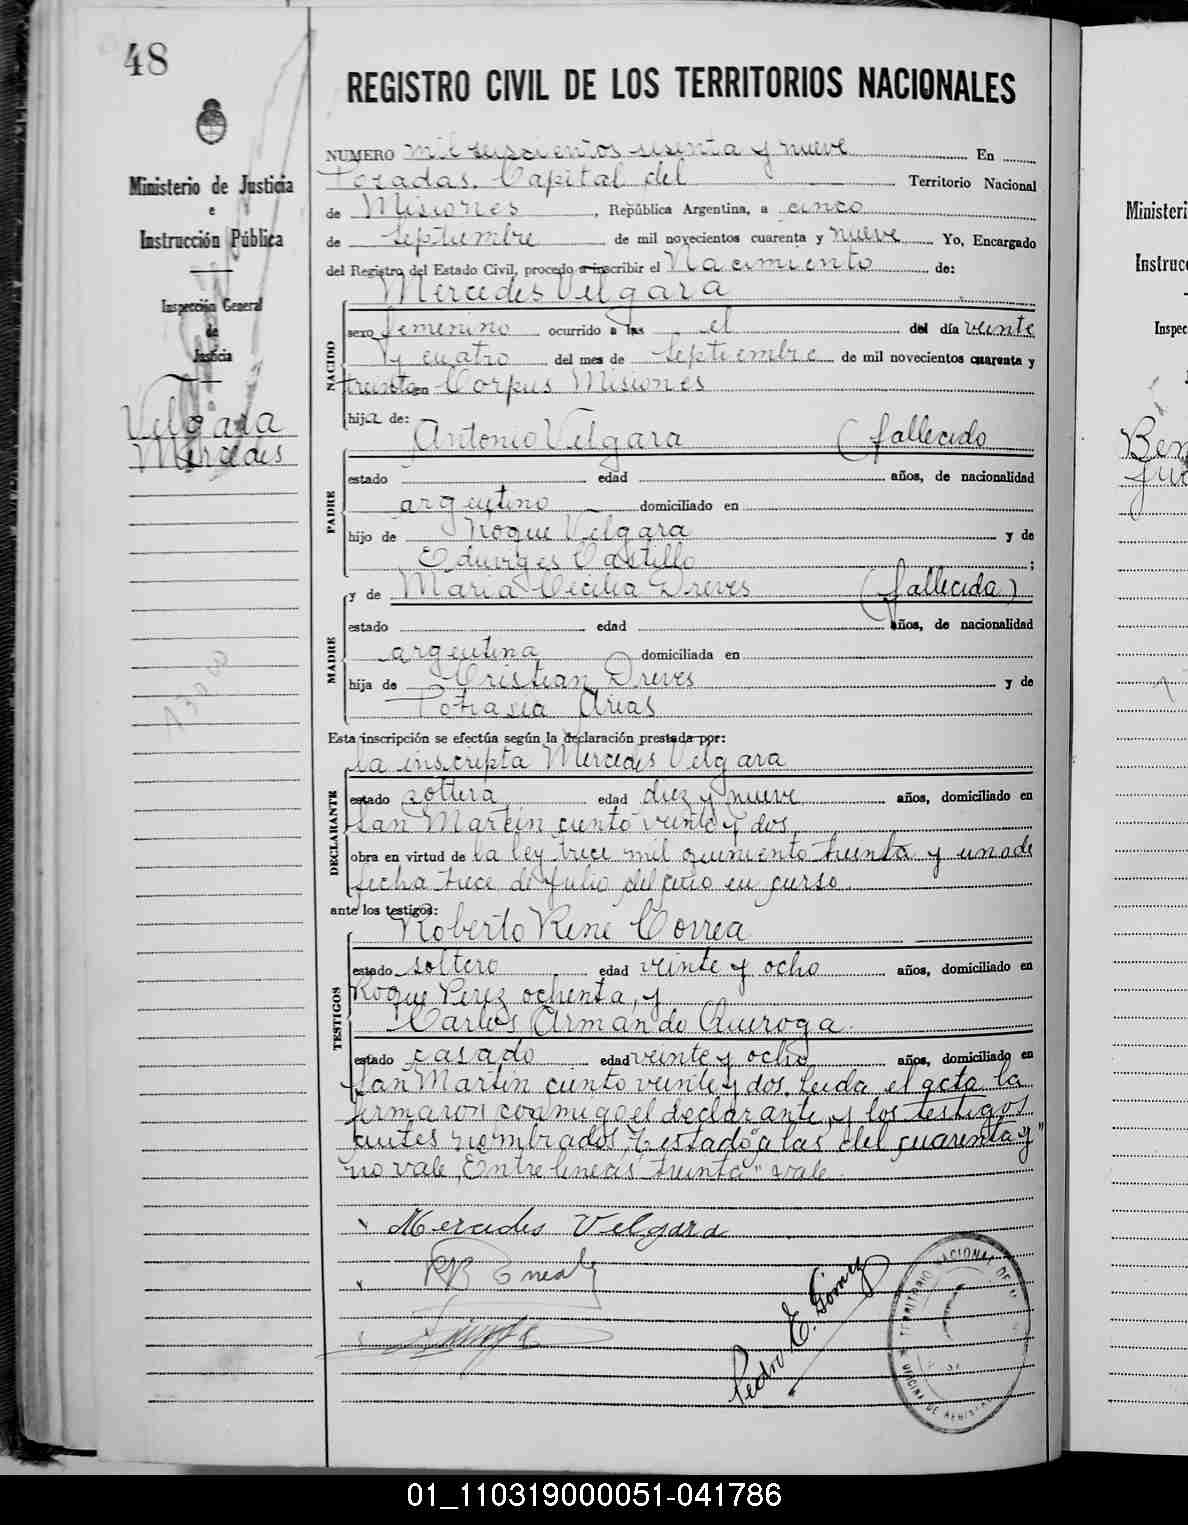 48
REGISTRO CIVIL DE LOS TERRITORIOS NACIONALES
Ministerio de Justicia
e
Instrucción Pública
Inspección General
de
Justicia
Velgara
Mercedes
NUMERO mil seiscientos sesenta y nueve En
Posadas. Capital del Territorio Nacional
de Misiones, República Argentina, a cinco
de septiembre de mil novecientos cuarenta y nueve Yo, Encargado
del Registro del Estado Civil, procedo a inscribir el Nacimiento de:
Mercedes Velgara
NACIDO
sexo femenino ocurrido a las el del día veinte
y cuatro del mes de septiembre de mil novecientos cuarenta y
treinta en Corpus Misiones
hija de:
Antonio Velgara (fallecido
PADRE
estado edad años, de nacionalidad
argentino domiciliado en
hijo de Roque Velgara y de
Eduviges Castillo ;
y de Maria Cecilia Dreves (fallecida)
MADRE
estado edad años, de nacionalidad
argentina domiciliada en
hija de Cristian Dreves y de
Arias
Esta inscripción se efectúa según la declaración prestada por:
la inscripta Mercedes Velgara
DECLARANTE
estado soltera edad diez y nueve años, domiciliado en
San Martin ciento veinte y dos
obra en virtud de la ley trece mil quiniento treinta y uno de
fecha trece de julio del año en curso.
ante los testigos:
Roberto Rene Correa
TESTIGOS
estado soltero edad veinte y ocho años, domiciliado en
Roque Perez ochenta, y
Carlos Armando Quiroga.
estado casado edad veinte y ocho años, domiciliado en
San Martin ciento veinte y dos. Leida el acta la
firmaron conmigo el declarante y los testigos
antes nombrados, Testado "a las del cuarenta y"
no vale, Entre lineas "treinta" vale.
Mercedes Velgara
Pedro E. Gómez
TERRITORIO NACIONAL DE
OFICINA DE
Ministeri
Instruc
Inspec
01_110319000051-041786